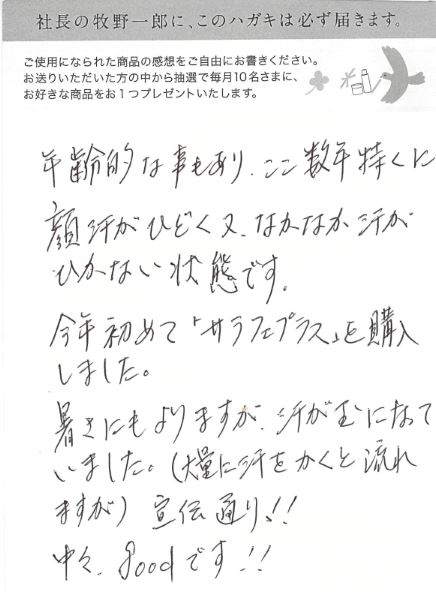 社長の牧野一郎に、このハガキは必ず届きます。
ご使用になられた商品の感想をご自由にお書きください。
お送りいただいた方の中から抽選で毎月10名さまに、
お好きな商品をお1つプレゼントいたします。
年齢的な事もあり、ここ数年特に
顔汗がひどく又、なかなか汗が
ひかない状態です。
今年初めて「サラフェプラス」を購入
しました。
暑さにもよりますが、汗が玉になって
いました。(大量に汗をかくと流れ
ますが) 宣伝通り!!
中々、goodです!!